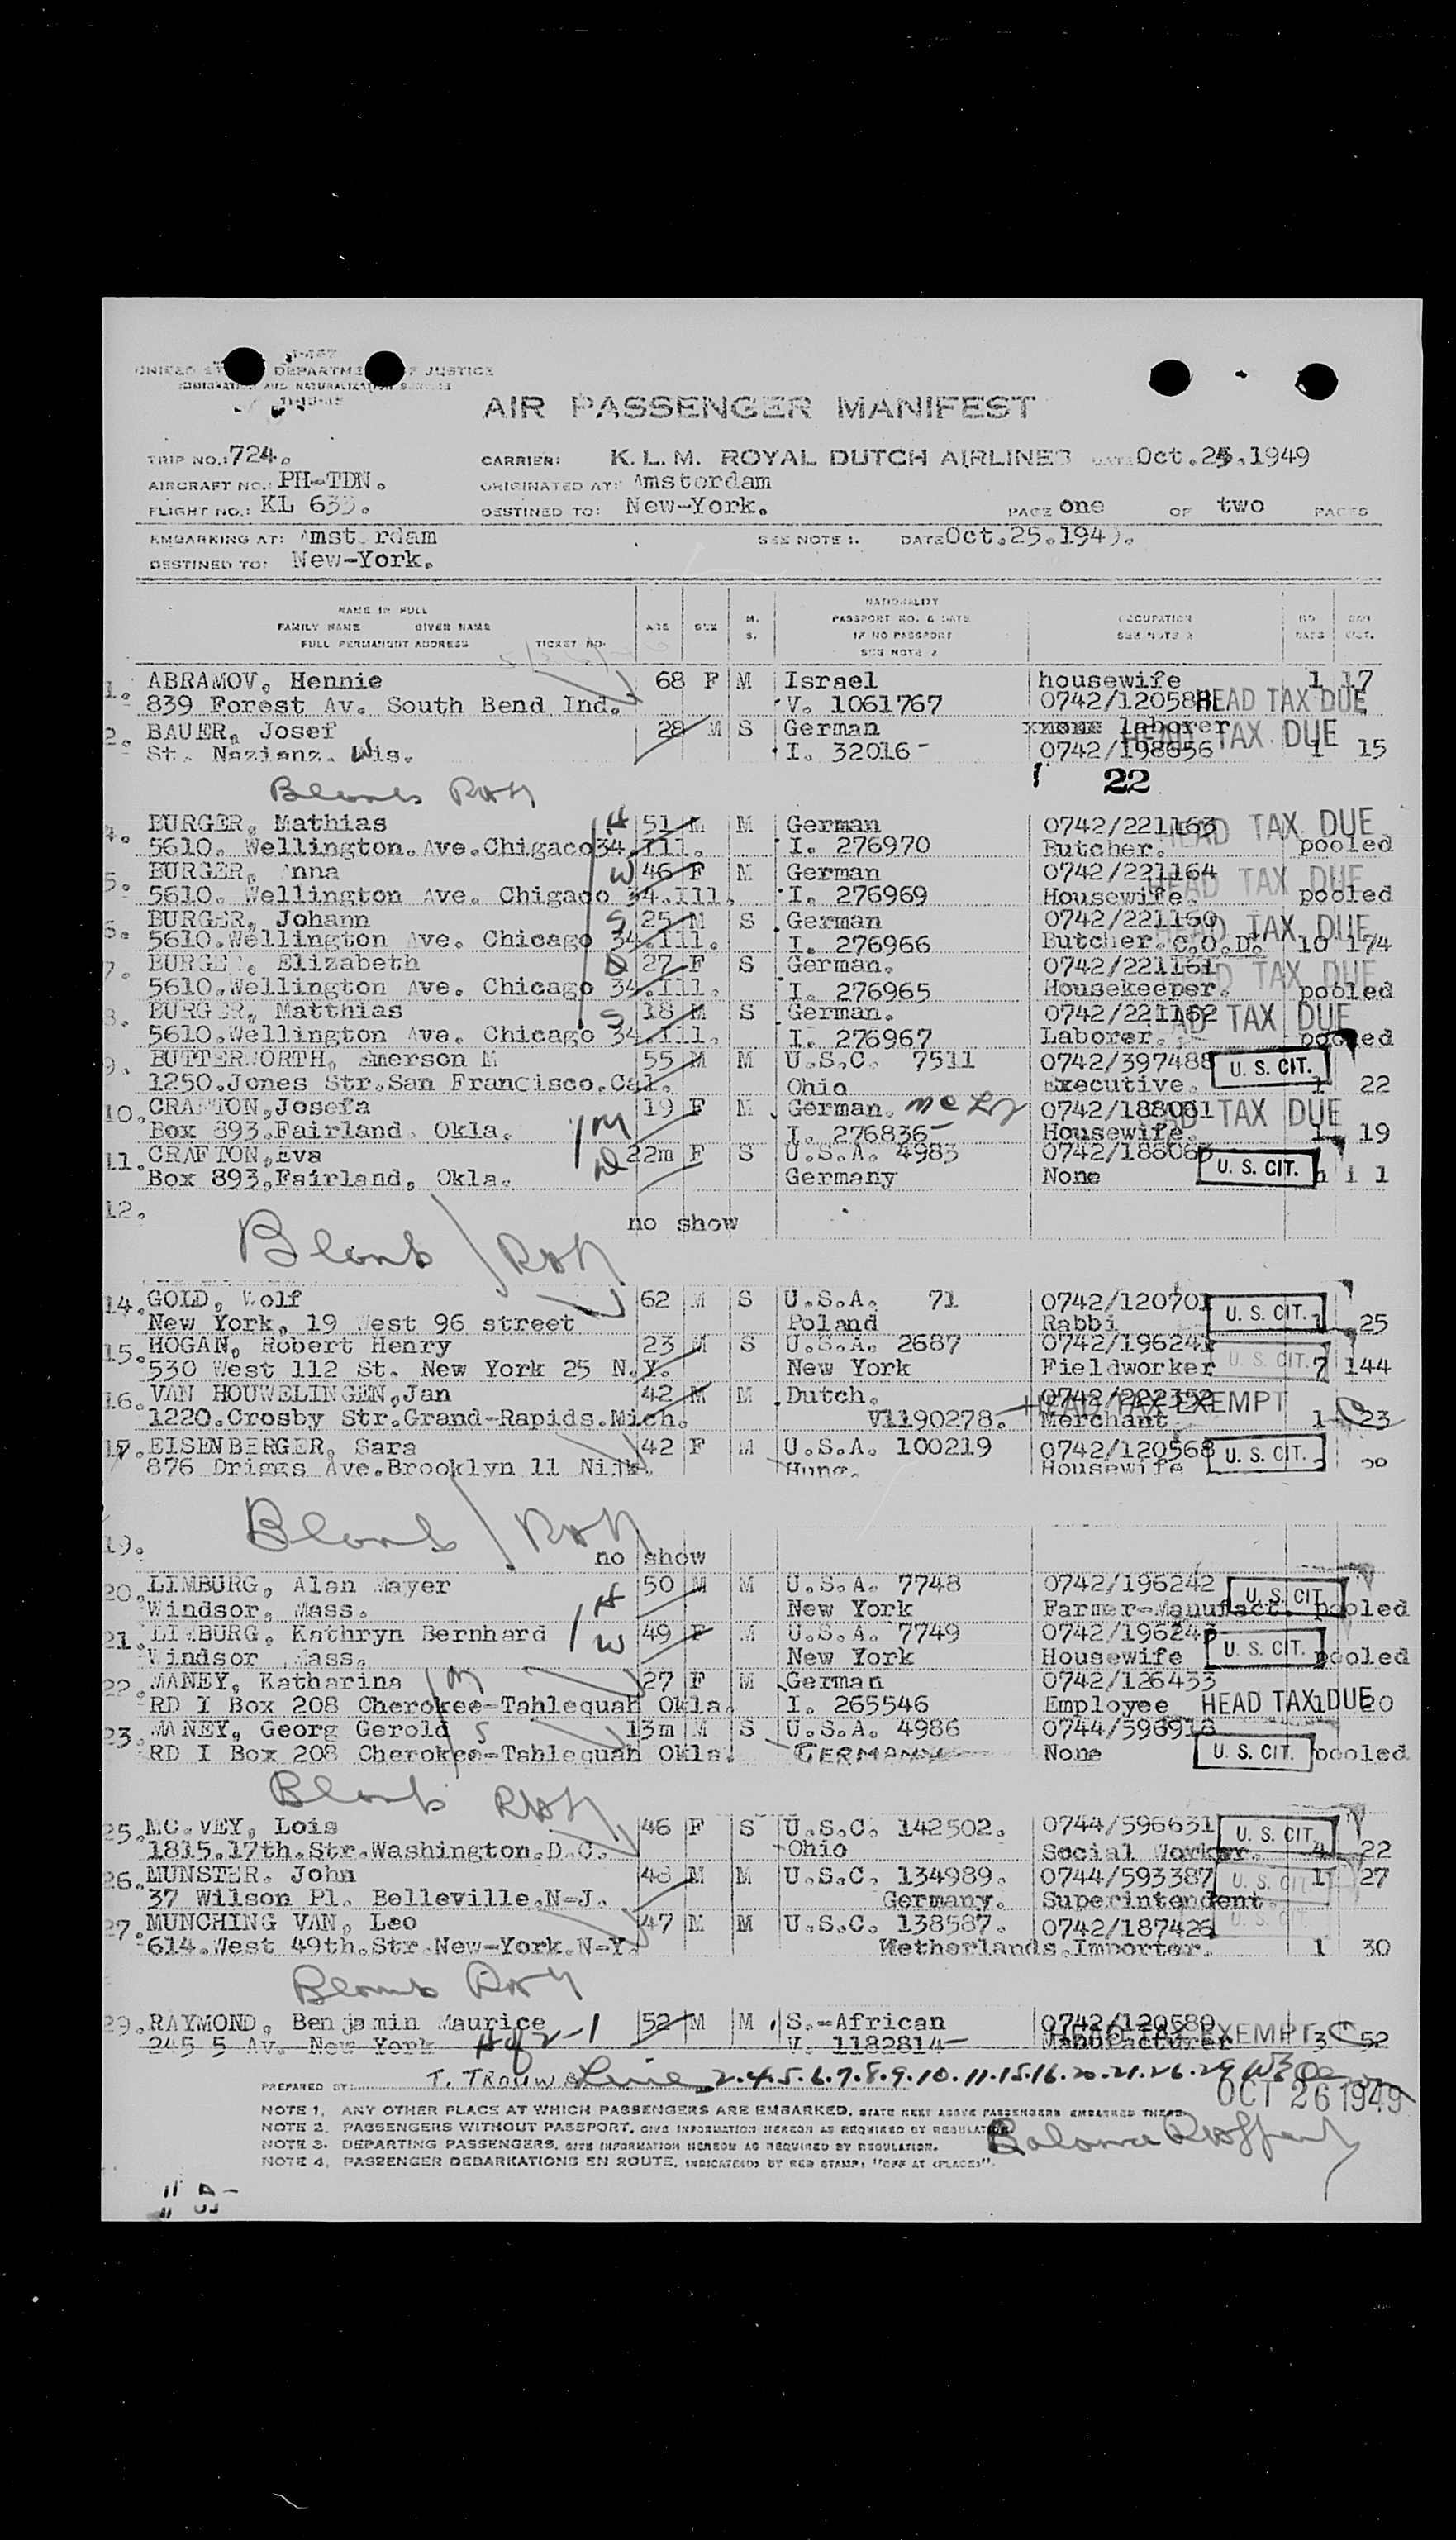 I-467
UNITED ST DEPARTME OF JUSTICE
IMMIGRATION AND NATURALIZATION SERVICE
AIR PASSENGER MANIFEST
TRIP NO.: 724. CARRIER: K. L. M. ROYAL DUTCH AIRLINES DATE Oct.25.1949
AIRCRAFT NO.: PH-TDN. ORIGINATED AT: Amsterdam
FLIGHT NO.: KL 633. DESTINED TO: New-York. PAGE one OF two PAGES
EMBARKING AT: Amsterdam SEE NOTE 1. DATE Oct.25.1949.
DESTINED TO: New-York.
NAME IN FULL
FAMILY NAME GIVEN NAME
FULL PERMANENT ADDRESS TICKET NO.
AGE SEX M. S.
NATIONALITY
PASSPORT NO. & DATE
IF NO PASSPORT
SEE NOTE 2
OCCUPATION
SEE NOTE 2
NO BAGS BAG WGT.
1. ABRAMOV, Hennie 68 F M Israel housewife 1 17
839 Forest Av. South Bend Ind. V. 1061767 0742/120588 HEAD TAX DUE
2. BAUER, Josef 28 M S German laborer
St. Nazianz. Wis. I. 32016- 0742/198656 HEAD TAX DUE 1 15
Blank 22
4. BURGER, Mathias H 51 M M German 0742/221163 HEAD TAX DUE
5610. Wellington.Ave.Chigaco34.Ill. I. 276970 Butcher. pooled
5. BURGER, Anna W 46 F M German 0742/221164 HEAD TAX DUE
5610. Wellington Ave. Chigaco 34.Ill. I. 276969 Housewife. pooled
6. BURGER, Johann S 25 M S German 0742/221160 HEAD TAX DUE
5610.Wellington Ave. Chicago 34.Ill. I. 276966 Butcher. C.O.D. 10 174
7. BURGER, Elizabeth D 27 F S German. 0742/221161 HEAD TAX DUE
5610.Wellington Ave. Chicago 34.Ill. I. 276965 Housekeeper. pooled
8. BURGER, Matthias S 18 M S German. 0742/221162 HEAD TAX DUE
5610.Wellington Ave. Chicago 34.Ill. I. 276967 Laborer. pooled
9. BUTTERWORTH, Emerson M 55 M M U.S.C. 7511 0742/397488 U. S. CIT.
1250.Jones Str.San Francisco.Cal. Ohio Executive. 1 22
10. CRAFTON,Josefa M 19 F M German. 0742/188061 HEAD TAX DUE
Box 893.Fairland. Okla. I. 276836- Housewife. 1 19
11. CRAFTON,Eva D 22m F S U.S.A. 4983 0742/188063 U. S. CIT.
Box 893,Fairland, Okla. Germany None n i l
12.
no show
Blank
14. GOLD, Wolf 62 M S U.S.A. 71 0742/120701 U. S. CIT.
New York, 19 West 96 street Poland Rabbi 1 25
15. HOGAN, Robert Henry 23 M S U.S.A. 2687 0742/196241 U. S. CIT.
530 West 112 St. New York 25 N.Y. New York Fieldworker 7 144
16. VAN HOUWELINGEN,Jan 42 M M Dutch. 0742/222352 HEAD TAX EXEMPT
1220.Crosby Str.Grand-Rapids.Mich. V1190278. Merchant 1 23
17. EISENBERGER, Sara 42 F M U.S.A. 100219 0742/120568 U. S. CIT.
876 Driggs Ave.Brooklyn 11 Hung. Housewife
Blank
19.
no show
20. LIMBURG, Alan Mayer H 50 M M U.S.A. 7748 0742/196242 U. S. CIT
Windsor, Mass. New York Farmer-Manufact. pooled
21. LIMBURG, Kathryn Bernhard W 49 F M U.S.A. 7749 0742/196243 U. S. CIT.
Windsor Mass. New York Housewife pooled
22. MANEY, Katharina M 27 F M German 0742/126433
RD I Box 208 Cherokee-Tahlequah Okla. I. 265546 Employee HEAD TAX DUE 1 20
23. MANEY, Georg Gerold S 13m M S U.S.A. 4986 0744/596918
RD I Box 208 Cherokee-Tahlequah Okla. GERMANY None U. S. CIT. pooled
Blank
25. MC.VEY, Lois 46 F S U.S.C. 142502. 0744/596631 U. S. CIT.
1815.17th.Str.Washington.D.C. Ohio Social Worker. 4 22
26. MUNSTER. John 48 M M U.S.C. 134989. 0744/593387 U. S. CIT 1 27
37 Wilson Pl. Belleville.N-J. Germany. Superintendent
27. MUNCHING VAN, Leo 47 M M U.S.C. 138587. 0742/187426 U. S. CIT
614.West 49th.Str.New-York.N-Y. Netherlands.Importer. 1 30
Blank
29. RAYMOND, Benjamin Maurice 52 M M S.-African 0742/120580 HEAD TAX EXEMPT
245 5 Av. New York V. 1182814- Manufacturer 3 52
PREPARED BY: T. TROUW Line 2.4.5.6.7.8.9.10.11.15.16.20.21.26.29
OCT 26 1949
NOTE 1. ANY OTHER PLACE AT WHICH PASSENGERS ARE EMBARKED, STATE NEXT ABOVE PASSENGERS EMBARKED THERE
NOTE 2. PASSENGERS WITHOUT PASSPORT, GIVE INFORMATION HEREON AS REQUIRED BY REGULATION
NOTE 3. DEPARTING PASSENGERS, GIVE INFORMATION HEREON AS REQUIRED BY REGULATION.
NOTE 4. PASSENGER DEBARKATIONS EN ROUTE, INDICATE(D) BY RED STAMP: "OFF AT (PLACE)".
Balance